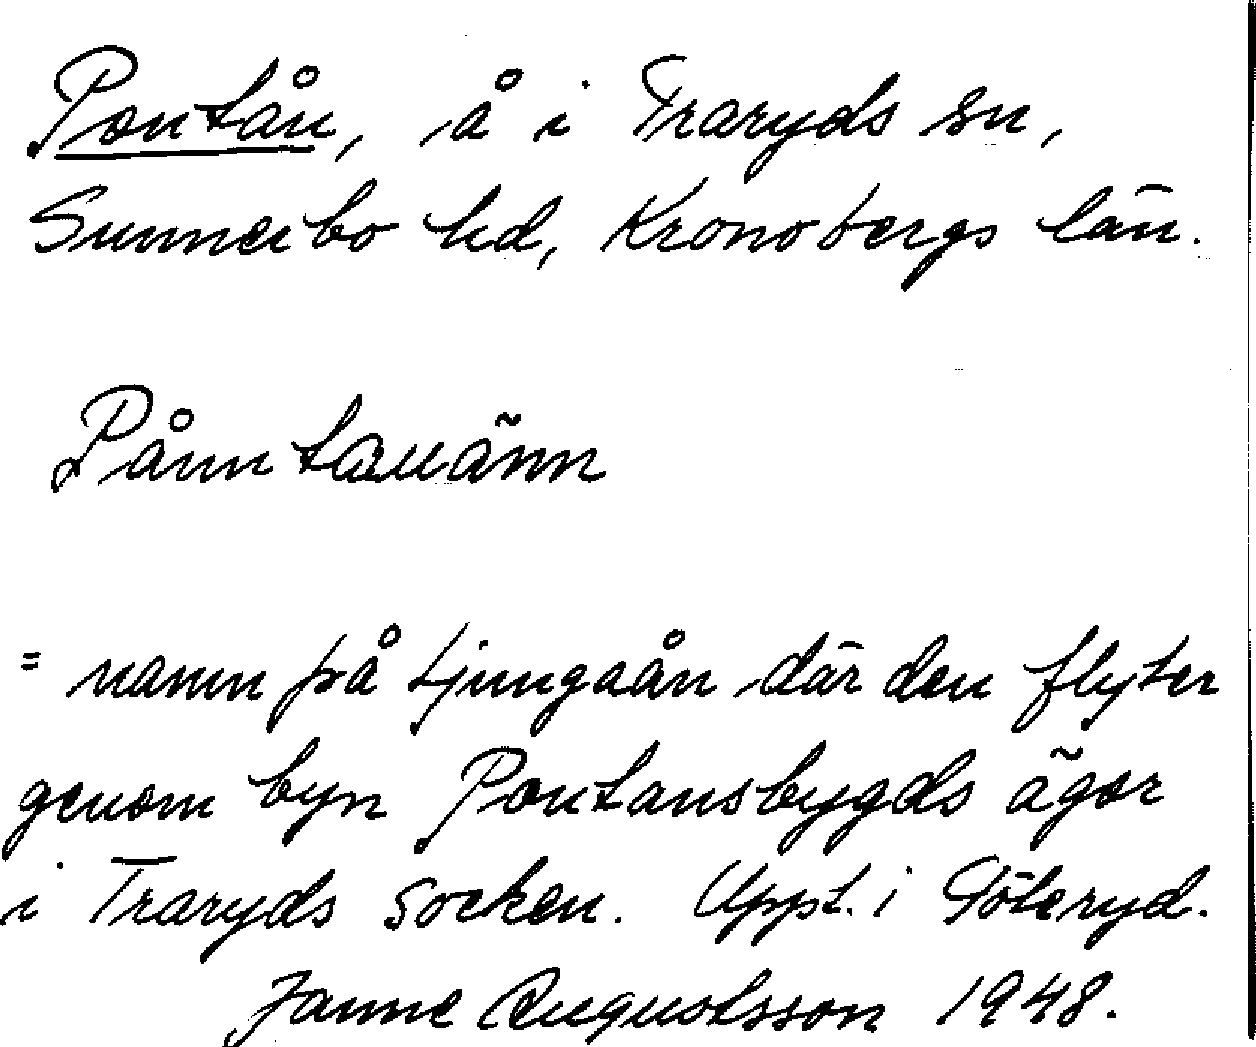 Pontån, å i Traryds sn,
Sunnerbo hd, Kronobergs län.
Pånntauänn
= namn på Ljungaån där den flyter
genom byn Pontansbygds ägor
i Traryds socken. Uppt. i Göteryd.
Janne Augustsson 1948.